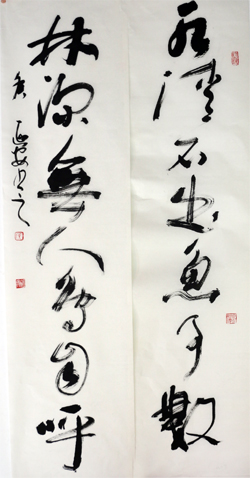 水清石出魚可數
林深無人鳥自呼